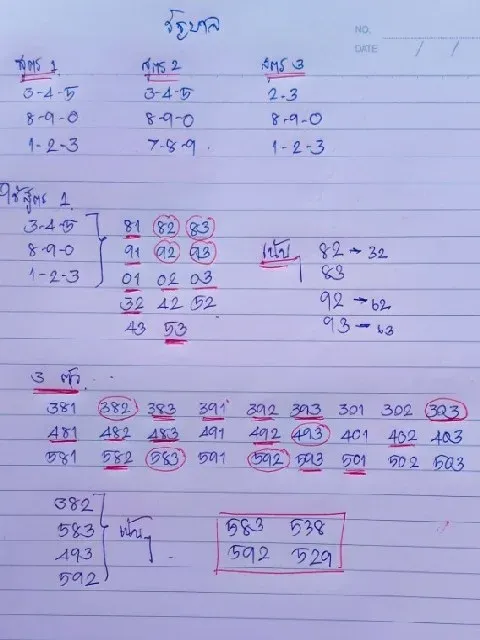 รัฐบาล
NO.
DATE / /
สูตร 1 สูตร 2 สูตร 3
3-4-5 3-4-5 2-3
8-9-0 8-9-0 8-9-0
1-2-3 7-8-9 1-2-3
ใช้สูตร 1
3-4-5 81 82 83
8-9-0 91 92 93
1-2-3 01 02 03
32 42 52
43 53
เน้น 82 → 32
83
92 → 62
93 → 63
3 ตัว
381 382 383 391 392 393 301 302 303
481 482 483 491 492 493 401 402 403
581 582 583 591 592 593 501 502 503
382
583
493
592
เน้นๆ
583 538
592 529